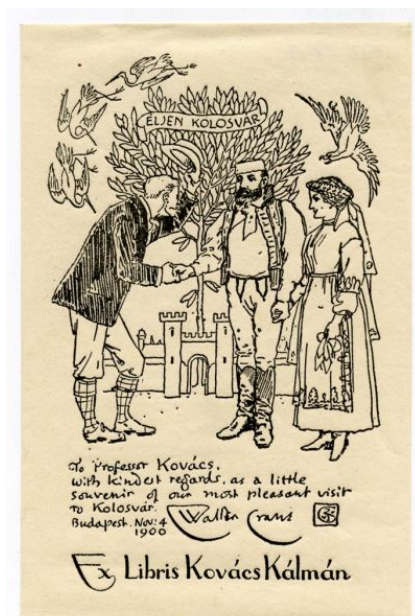 ÉLJEN KOLOSVÁR
To Professor Kovács,
with kindest regards, as a little
souvenir of our most pleasant visit
to Kolosvár.
Budapest. Nov: 4
1900
Walter Crane
Ex Libris Kovács Kálmán